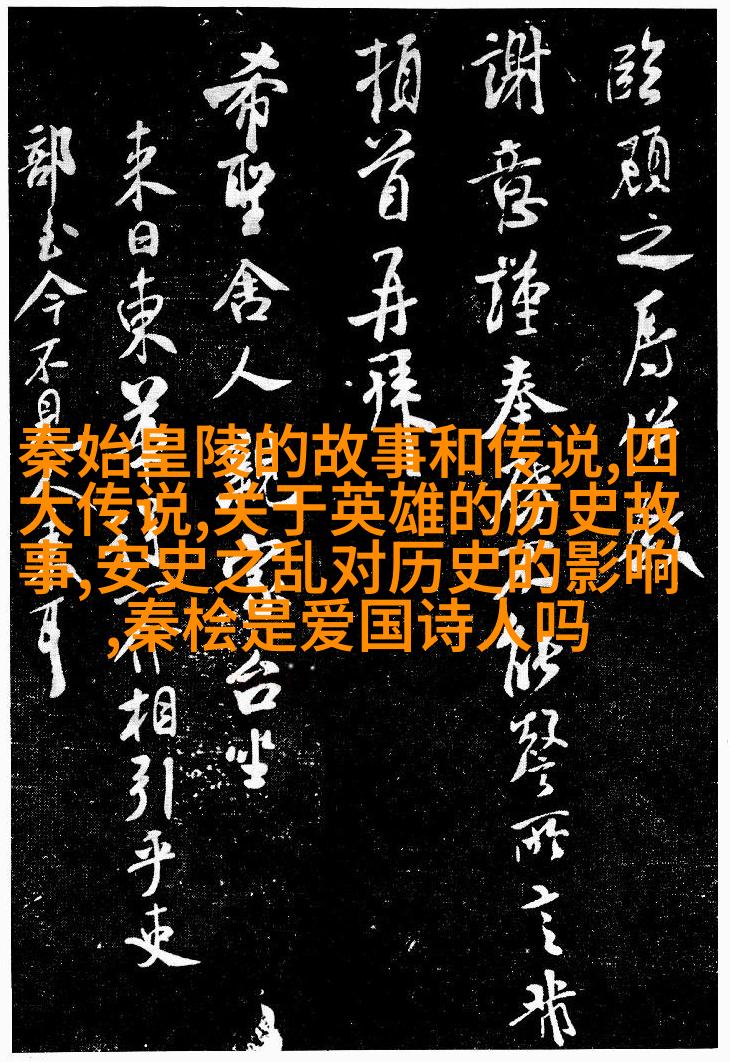 臨顧之
謝意謹奉 不能 所言
頓首再拜
希聖舍人 台坐
來日東 相引乎更
部 今不見 耳
秦始皇陵的故事和传说,四
大传说,关于英雄的历史故
事,安史之乱对历史的影响
,秦桧是爱国诗人吗